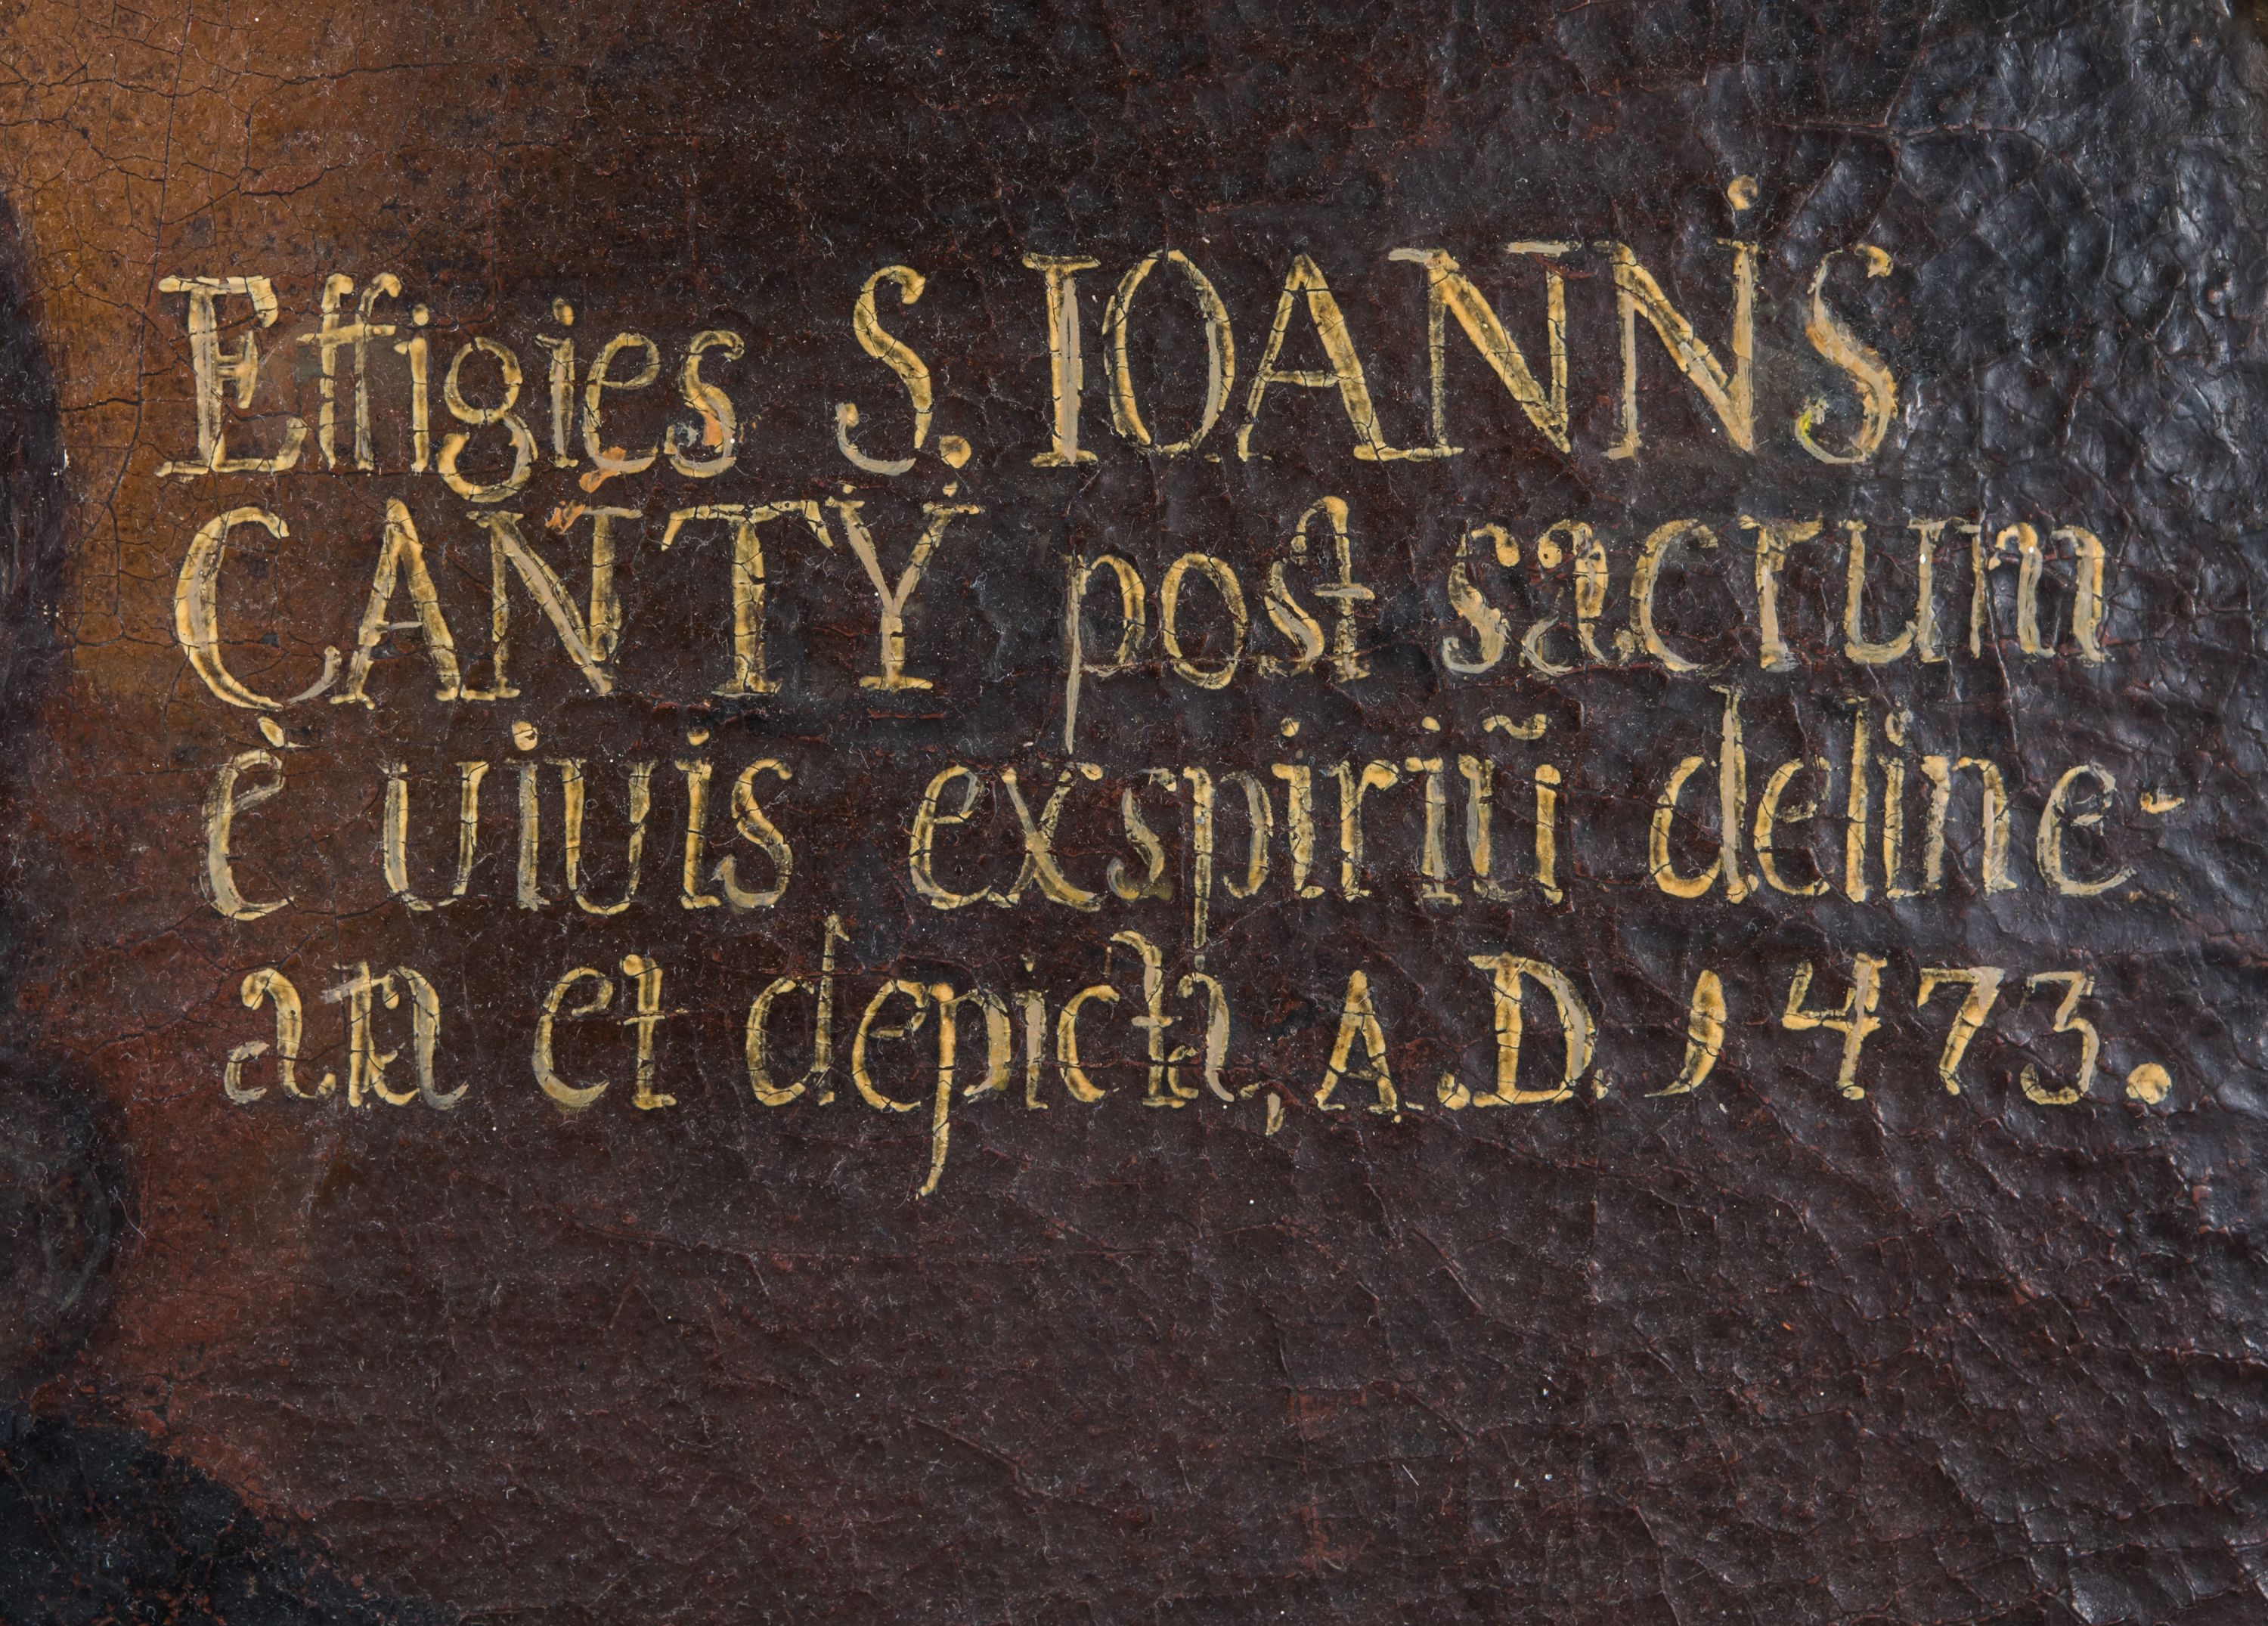 Effigies S. IOANNIS
CANTÿ post sacrum
è uiuis exspiriũ deline-
ata et depicta, A.D. 1473.